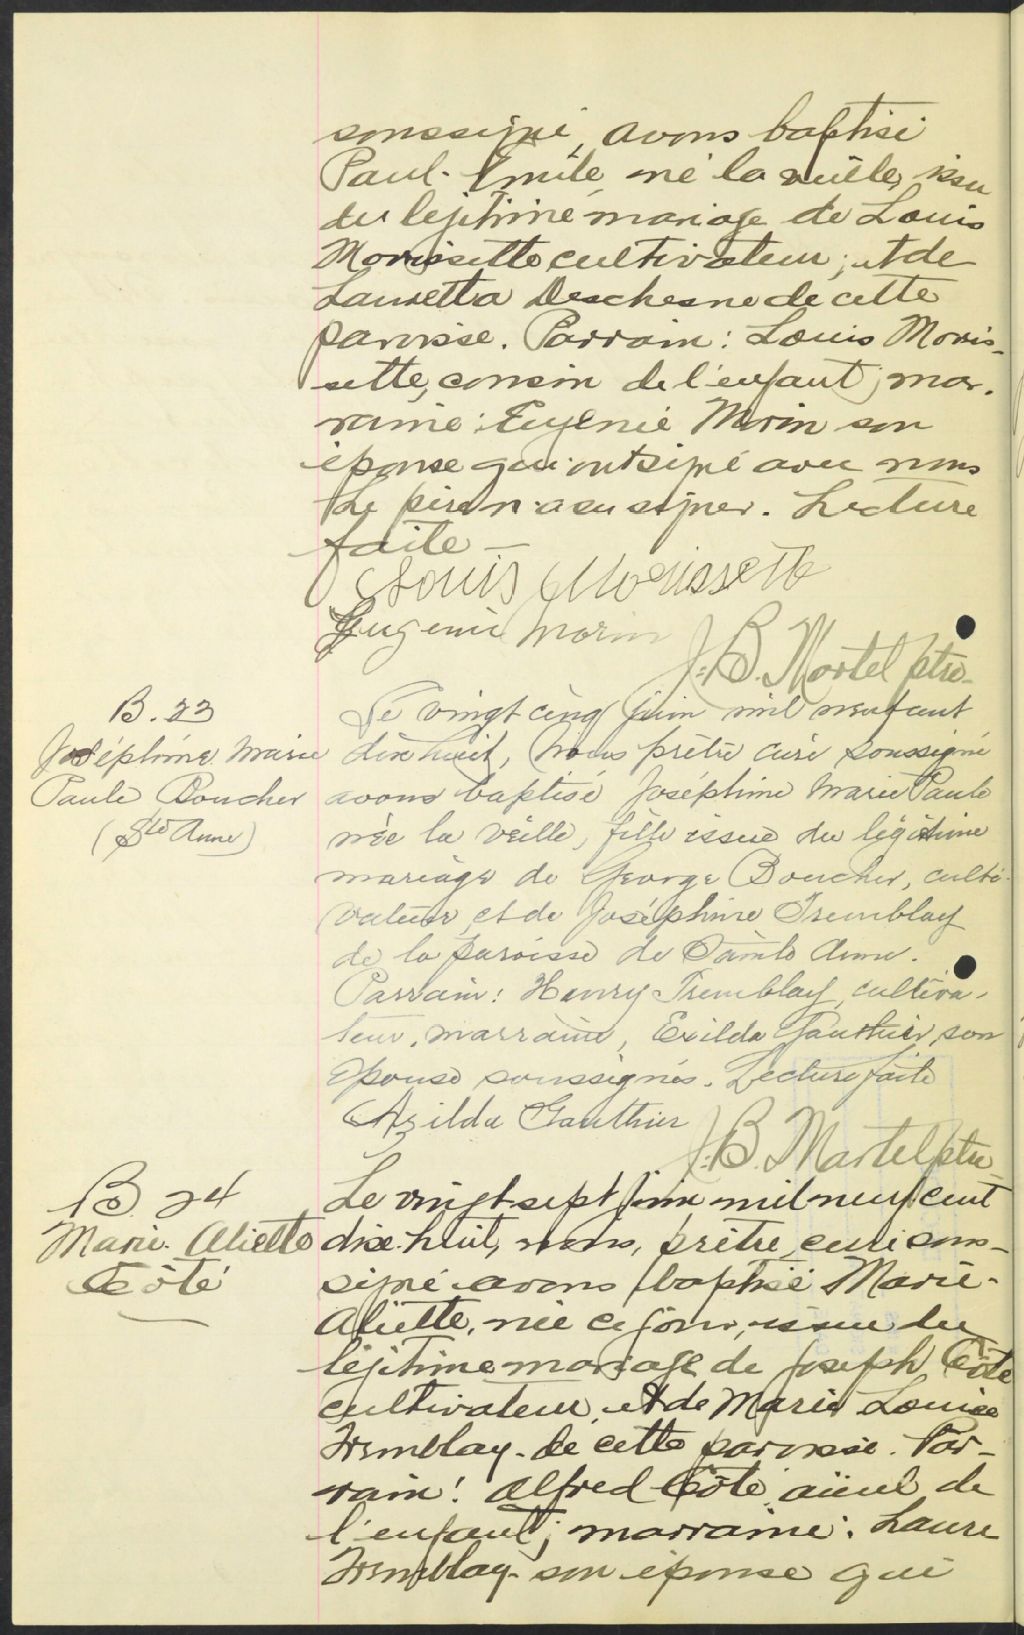 soussigné, avons baptisé
Paul-Emile, né la veille, issu
du legitime mariage de Louis
Morissette cultivateur, et de
Lauretta Deschesne de cette
paroisse. Parrain: Louis Moris-
sette, cousin de l'enfant; mar-
raine: Eugénie Morin son
épouse qui ont signé avec nous
Le père n'a su signer. Lecture
faite —
Louis Morissette
Eugenie Morin
J.-B. Martel ptre
B. 23
Joséphine Marie
Paule Boucher
(Ste Anne)
Le vingt cinq juin mil neuf cent
dix huit, Nous prêtre curé soussigné
avons baptisé Joséphine Marie Paule
née la veille, fille issue du légitime
mariage de George Boucher, culti-
vateur, et de Joséphine Tremblay
de la paroisse de Sainte Anne.
Parrain: Henry Tremblay, cultiva-
teur, marraine, Exilda Gauthier, son
épouse soussignés. Lecture faite
Azilda Gauthier
J.-B. Martel ptre
B 24
Marie Aliette
Côté
Le vingt sept juin mil neuf cent
dix-huit, nous, prêtre, curé sous-
signé avons baptisé Marie-
Aliette, née ce jour, issue du
légitime mariage de Joseph Côté
cultivateur, et de Marie Louise
Tremblay de cette paroisse. Par-
rain: Alfred Côté, aïeul de
l'enfant; marraine: Laure
Tremblay son épouse qui